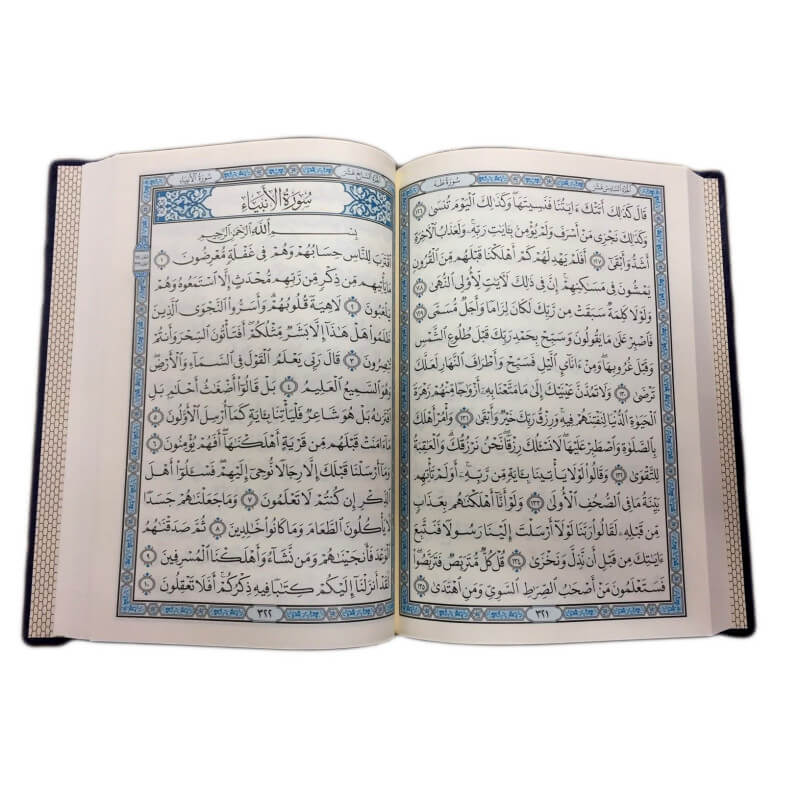 الجزء السادس عشر
سورة طه
قَالَ كَذَٰلِكَ أَتَتْكَ ءَايَٰتُنَا فَنَسِيتَهَاۖ وَكَذَٰلِكَ ٱلْيَوْمَ تُنسَىٰ ١٢٦
وَكَذَٰلِكَ نَجْزِى مَنْ أَسْرَفَ وَلَمْ يُؤْمِنۢ بِـَٔايَٰتِ رَبِّهِۦۚ وَلَعَذَابُ ٱلْأٓخِرَةِ
أَشَدُّ وَأَبْقَىٰٓ ١٢٧ أَفَلَمْ يَهْدِ لَهُمْ كَمْ أَهْلَكْنَا قَبْلَهُم مِّنَ ٱلْقُرُونِ
يَمْشُونَ فِى مَسَٰكِنِهِمْۗ إِنَّ فِى ذَٰلِكَ لَأٓيَٰتٍ لِّأُو۟لِى ٱلنُّهَىٰ ١٢٨
وَلَوْلَا كَلِمَةٌ سَبَقَتْ مِن رَّبِّكَ لَكَانَ لِزَامًا وَأَجَلٌ مُّسَمًّى ١٢٩
فَٱصْبِرْ عَلَىٰ مَا يَقُولُونَ وَسَبِّحْ بِحَمْدِ رَبِّكَ قَبْلَ طُلُوعِ ٱلشَّمْسِ
وَقَبْلَ غُرُوبِهَاۖ وَمِنْ ءَانَآئِ ٱلَّيْلِ فَسَبِّحْ وَأَطْرَافَ ٱلنَّهَارِ لَعَلَّكَ
تَرْضَىٰ ١٣٠ وَلَا تَمُدَّنَّ عَيْنَيْكَ إِلَىٰ مَا مَتَّعْنَا بِهِۦٓ أَزْوَٰجًا مِّنْهُمْ زَهْرَةَ
ٱلْحَيَوٰةِ ٱلدُّنْيَا لِنَفْتِنَهُمْ فِيهِۚ وَرِزْقُ رَبِّكَ خَيْرٌ وَأَبْقَىٰ ١٣١ وَأْمُرْ أَهْلَكَ
بِٱلصَّلَوٰةِ وَٱصْطَبِرْ عَلَيْهَاۖ لَا نَسْـَٔلُكَ رِزْقًاۖ نَّحْنُ نَرْزُقُكَۗ وَٱلْعَٰقِبَةُ
لِلتَّقْوَىٰ ١٣٢ وَقَالُوا۟ لَوْلَا يَأْتِينَا بِـَٔايَةٍ مِّن رَّبِّهِۦٓۚ أَوَلَمْ تَأْتِهِم
بَيِّنَةُ مَا فِى ٱلصُّحُفِ ٱلْأُولَىٰ ١٣٣ وَلَوْ أَنَّآ أَهْلَكْنَٰهُم بِعَذَابٍ
مِّن قَبْلِهِۦ لَقَالُوا۟ رَبَّنَا لَوْلَآ أَرْسَلْتَ إِلَيْنَا رَسُولًا فَنَتَّبِعَ
ءَايَٰتِكَ مِن قَبْلِ أَن نَّذِلَّ وَنَخْزَىٰ ١٣٤ قُلْ كُلٌّ مُّتَرَبِّصٌ فَتَرَبَّصُوا۟ۖ
فَسَتَعْلَمُونَ مَنْ أَصْحَٰبُ ٱلصِّرَٰطِ ٱلسَّوِىِّ وَمَنِ ٱهْتَدَىٰ ١٣٥
٣٢١
الجزء السابع عشر
سورة الأنبياء
سُورَةُ الأَنبِيَاءِ
بِسْمِ ٱللَّهِ ٱلرَّحْمَٰنِ ٱلرَّحِيمِ
ٱقْتَرَبَ لِلنَّاسِ حِسَابُهُمْ وَهُمْ فِى غَفْلَةٍ مُّعْرِضُونَ ١
مَا يَأْتِيهِم مِّن ذِكْرٍ مِّن رَّبِّهِم مُّحْدَثٍ إِلَّا ٱسْتَمَعُوهُ وَهُمْ
يَلْعَبُونَ ٢ لَاهِيَةً قُلُوبُهُمْۗ وَأَسَرُّوا۟ ٱلنَّجْوَى ٱلَّذِينَ
ظَلَمُوا۟ هَلْ هَٰذَآ إِلَّا بَشَرٌ مِّثْلُكُمْۖ أَفَتَأْتُونَ ٱلسِّحْرَ وَأَنتُمْ
تُبْصِرُونَ ٣ قَالَ رَبِّى يَعْلَمُ ٱلْقَوْلَ فِى ٱلسَّمَآءِ وَٱلْأَرْضِۖ
وَهُوَ ٱلسَّمِيعُ ٱلْعَلِيمُ ٤ بَلْ قَالُوٓا۟ أَضْغَٰثُ أَحْلَٰمٍۭ بَلِ
ٱفْتَرَىٰهُ بَلْ هُوَ شَاعِرٌ فَلْيَأْتِنَا بِـَٔايَةٍ كَمَآ أُرْسِلَ ٱلْأَوَّلُونَ ٥
مَآ ءَامَنَتْ قَبْلَهُم مِّن قَرْيَةٍ أَهْلَكْنَٰهَآۖ أَفَهُمْ يُؤْمِنُونَ ٦
وَمَآ أَرْسَلْنَا قَبْلَكَ إِلَّا رِجَالًا نُّوحِىٓ إِلَيْهِمْۖ فَسْـَٔلُوٓا۟ أَهْلَ
ٱلذِّكْرِ إِن كُنتُمْ لَا تَعْلَمُونَ ٧ وَمَا جَعَلْنَٰهُمْ جَسَدًا
لَّا يَأْكُلُونَ ٱلطَّعَامَ وَمَا كَانُوا۟ خَٰلِدِينَ ٨ ثُمَّ صَدَقْنَٰهُمُ
ٱلْوَعْدَ فَأَنجَيْنَٰهُمْ وَمَن نَّشَآءُ وَأَهْلَكْنَا ٱلْمُسْرِفِينَ ٩
لَقَدْ أَنزَلْنَآ إِلَيْكُمْ كِتَٰبًا فِيهِ ذِكْرُكُمْۖ أَفَلَا تَعْقِلُونَ ١٠
٣٢٢